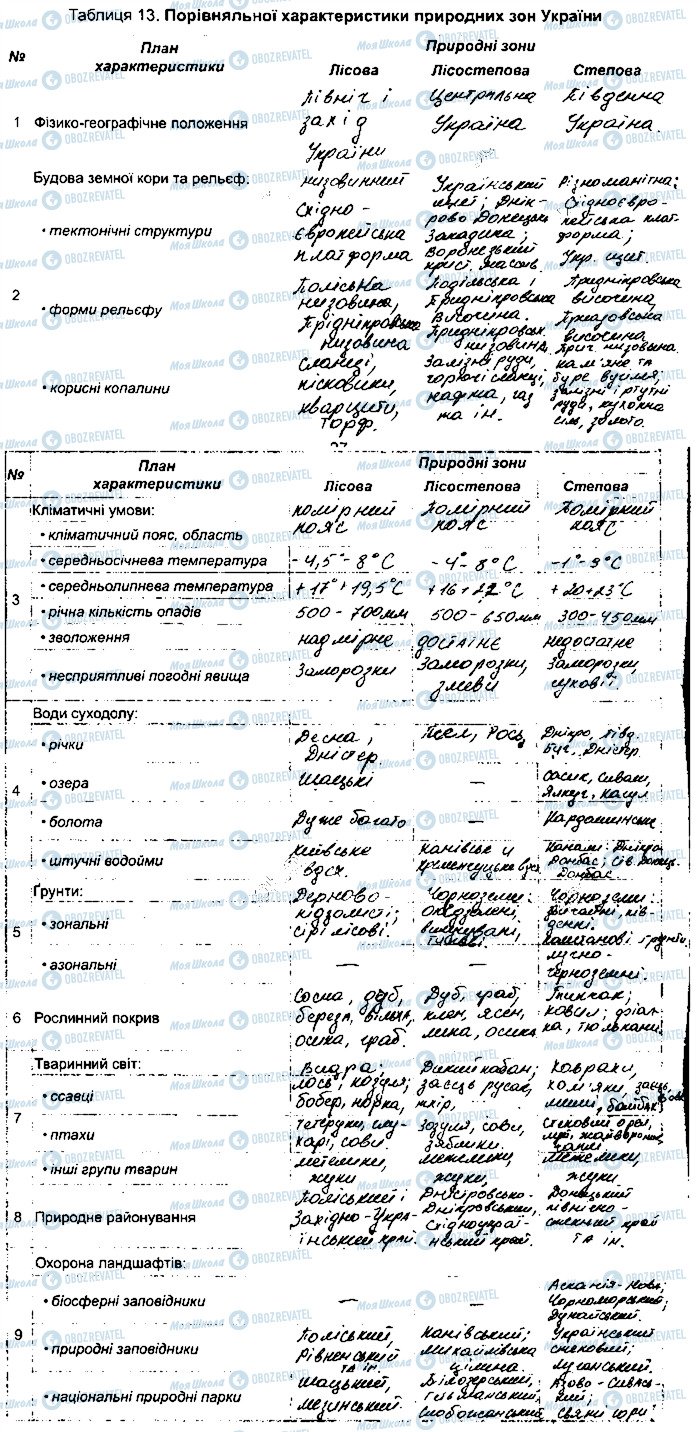 Таблиця 13. Порівняльної характеристики природних зон України
№ План характеристики Природні зони
Лісова Лісостепова Степова
Північ і Центральна Південна
1 Фізико-географічне положення захід Україна Україна.
України
Будова земної кори та рельєф: низовинний Український Різноманітна;
Східно- щит; Дніп- Східноєвро-
• тектонічні структури європейська рово Донецька пейська плат-
платформа западина; форма;
Воронезький Укр. щит.
2 Поліська Подільська і Придніпровська
• форми рельєфу низовина, Придніпровська височина,
Придніпровська височина. Приазовська
низовина Придніпровська низовина, височина
Прич. низовина
сланці, Залізні руди, кам'яне та
• корисні копалини пісковики, горючі сланці, буре вугілля;
кварцити, нафта, газ залізні і ртутні
торф. та ін. руди, кухонна
сіль, золото.
27
№ План характеристики Природні зони
Лісова Лісостепова Степова
Кліматичні умови: помірний Помірний Помірний
• кліматичний пояс, область пояс пояс пояс
• середньосічнева температура -4,5°-8°С -4°-8°С -1°-9°С
3 • середньолипнева температура +17°+19,5°С +16+22°С +20+23°С
• річна кількість опадів 500-700мм 500-650мм 300-450мм
• зволоження надмірне достатнє недостатнє
• несприятливі погодні явища Заморозки Заморозки, Заморозки
зливи суховії.
Води суходолу:
• річки Десна, Псел, Рось, Дніпро, Півд.
Дністер Буг, Дністер
4 • озера Шацькі — Сасик, Сиваш,
Ялпуг, Кагул
• болота Дуже багато — Кардашинське
• штучні водойми Київське Канівське и Канали: Дніпро
вдсх. Кременчуцьке вдсх. Донбас; Сів. Донець-
Донбас
Ґрунти: Дерново- Чорноземи: Чорноземи
підзолисті; опідзолені, звичайні, пів
5 • зональні сірі лісові. вилугувані, денні.
типові. Каштанові ґрунти
• азональні — — лучно-
чорноземні.
Сосна, дуб, Дуб, граб, Типчак,
6 Рослинний покрив береза, вільха, клен, ясен, ковил; фіал-
осика, граб. липа, осика ка, тюльпани
Тваринний світ: Видра; Дикий кабан; Ховрахи,
• ссавці лось; козуля; заєць русак, хом'яки, заєць,
7 бобер, норка, тхір, миші, бабак
• птахи тетеруки, глу- зозуля, сови, степовий орел,
харі, сови. зяблики.
• інші групи тварин метелики, метелики, Метелики,
жуки жуки, жуки
Поліський і Дністровсько- Донецький
8 Природне районування Західно-Укра- Дніпровський, північно-
їнський край. Східноукраї- степний край
нський край. та ін.
Охорона ландшафтів:
• біосферні заповідники — — Асканія-Нова;
Чорноморський;
Дунайський.
9 • природні заповідники Поліський, Канівський; Український
Рівненський Михайлівська степовий;
та ін цілина. Луганський.
• національні природні парки Шацький, Білозерський, Азово-Сивась-
Мезинський. Гетьманський, кий;
Слобожанський Святі гори